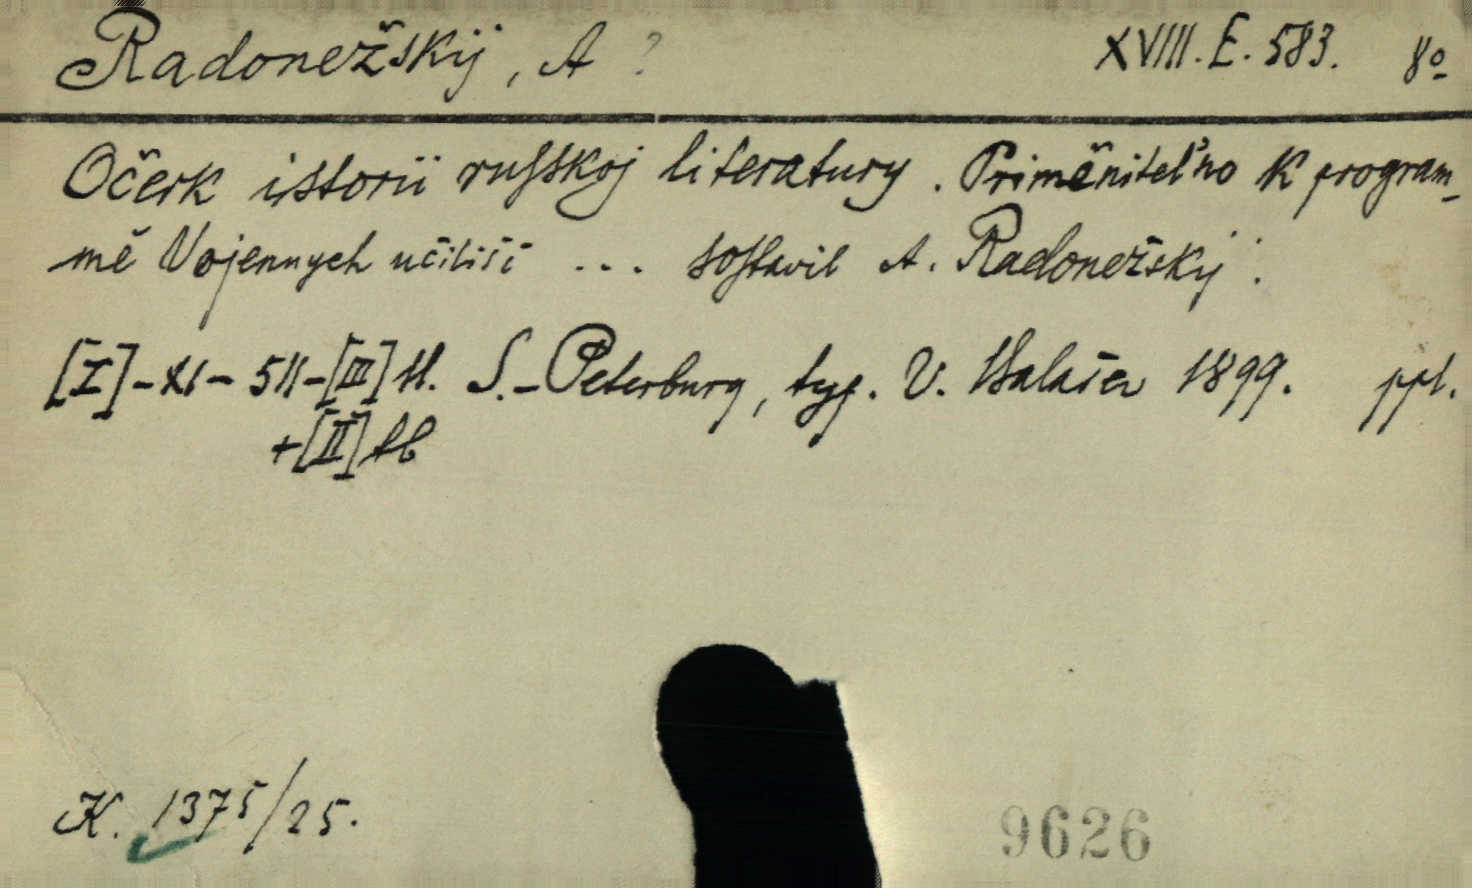 Radonežskij, A ? XVIII. E. 583. 8º
Očerk istorii russkoj literatury. Priměnitel'no k program-
mě Vojennych učilišč ... sostavil A. Radonežskij.
[I]-XI-511-[III] st. S.-Peterburg, typ. V. Balašev 1899. ppl.
+[II] st
K. 1375/25.
9626